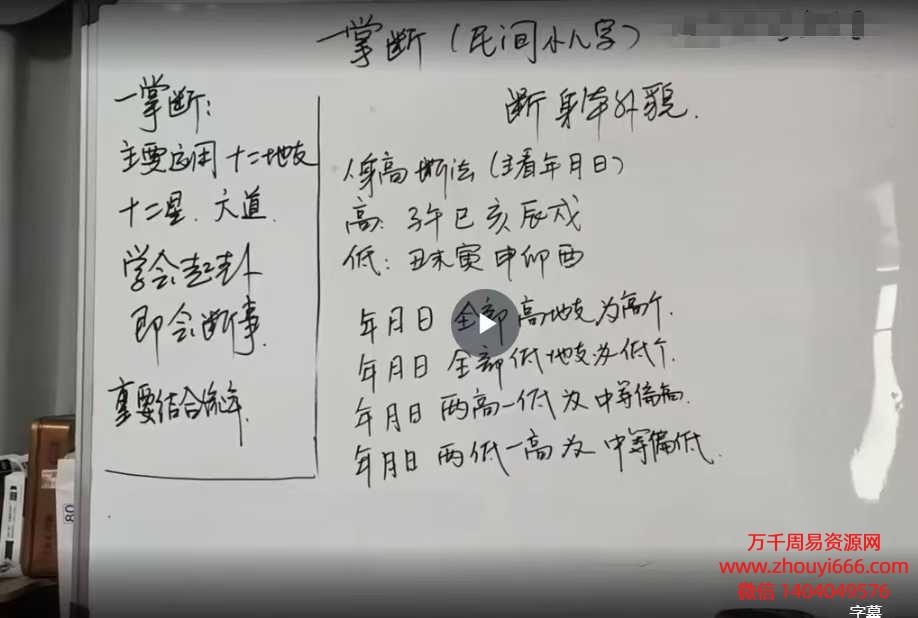 一掌断（民间小八字）
一掌断：
主要应用十二地支
十二星、六道
学会起卦
即会断事
重要结合流年
断身体外貌.
人身高断法（主看年月日）
高：子午巳亥辰戌
低：丑未寅申卯酉
年月日全部高地支为高个.
年月日全部低地支为低个.
年月日两高一低为中等偏高.
年月日两低一高为中等偏低.
万千周易资源网
www.zhouyi666.com
微信 1404049576
字幕
80